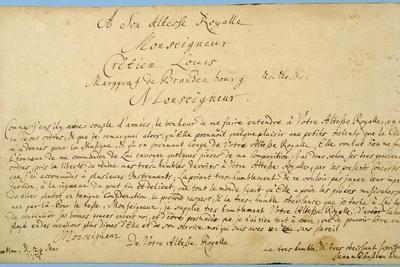 A Son Altesse Royalle
Monseigneur
Crêtien Louis
Marggraf de Brandenbourg &c. &c. &c.
Monseigneur.
Comme j'eus il y a une couple d'années, le bonheur de me faire entendre à Vôtre Altesse Royalle, en
de ses ordres, & que je remarquai alors, qu'Elle prennoit quelque plaisir aux petits talents que le Ciel
m'a donnés pour la Musique, & qu'en prennant Conge de Vôtre Altesse Royalle, Elle voulut bien me
l'honneur de me commander de Lui envoyer quelques pieces de ma Composition: j'ai donc selon ses tres gracieux
ordres, pris la liberté de rendre mes tres-humbles devoirs à Vôtre Altesse Royalle, par les presents
que j'ai accommodés à plusieurs Instruments; La priant tres-humblement de ne vouloir pas juger leur
à la rigueur du gout fin et delicat, que tout le monde sçait qu'Elle a pour les piéces musicales
de tirer plutot en benigne Consideration, le profond respect, & la tres-humble obeissance que je
Pour le reste, Monseigneur, je supplie tres humblement Vôtre Altesse Royalle, d'avoir la
de continüer ses bonnes graces envers moi, et d'être persuadée que je n'ai rien tant à cœur, que de pouvoir être
en des occasions plus dignes d'Elle et de son service, moi qui suis avec un zele sans pareil
Monseigneur
De Vôtre Altesse Royalle
Le tres humble & tres obeissant
Jean Sebastien